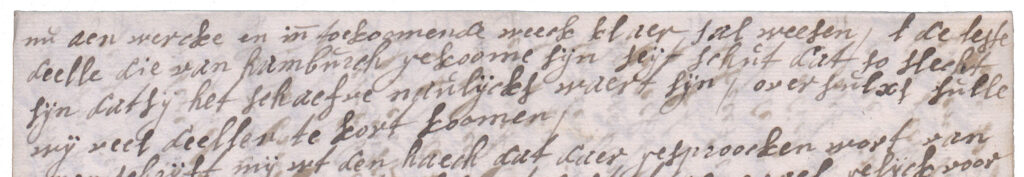 nu aen wercke en in toekoomende weeck klaer sal weesen, de leste
deelle die van hamburch gekoome syn seyt schut dat so slecht
syn dat sy het schaefve naulyckx waert syn, oversulxs sulle
wy veel deellen te kort koomen,
schryft my wt den haech dat daer gesproocken wort van
voor